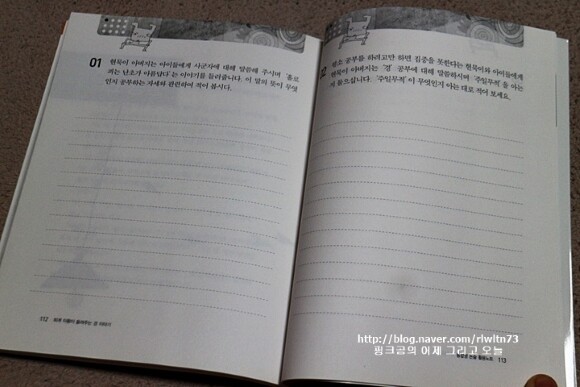 01 현묵이 아버지는 아이들에게 사군자에 대해 말씀해 주시며 '홀로
피는 난초가 아름답다'는 이야기를 들려줍니다. 이 말의 뜻이 무엇
인지 공부하는 자세와 관련하여 적어 봅시다.
112
평소 공부를 하려고만 하면 집중을 못한다는 현묵이와 아이들에게
현묵이 아버지는 '경' 공부에 대해 말씀하시며 '주일무적'을 아는
지 물으십니다. '주일무적'이 무엇인지 아는 대로 적어 보세요.
113
http://blog.naver.com/rlwltn73
핑크공의 어제 그리고 오늘